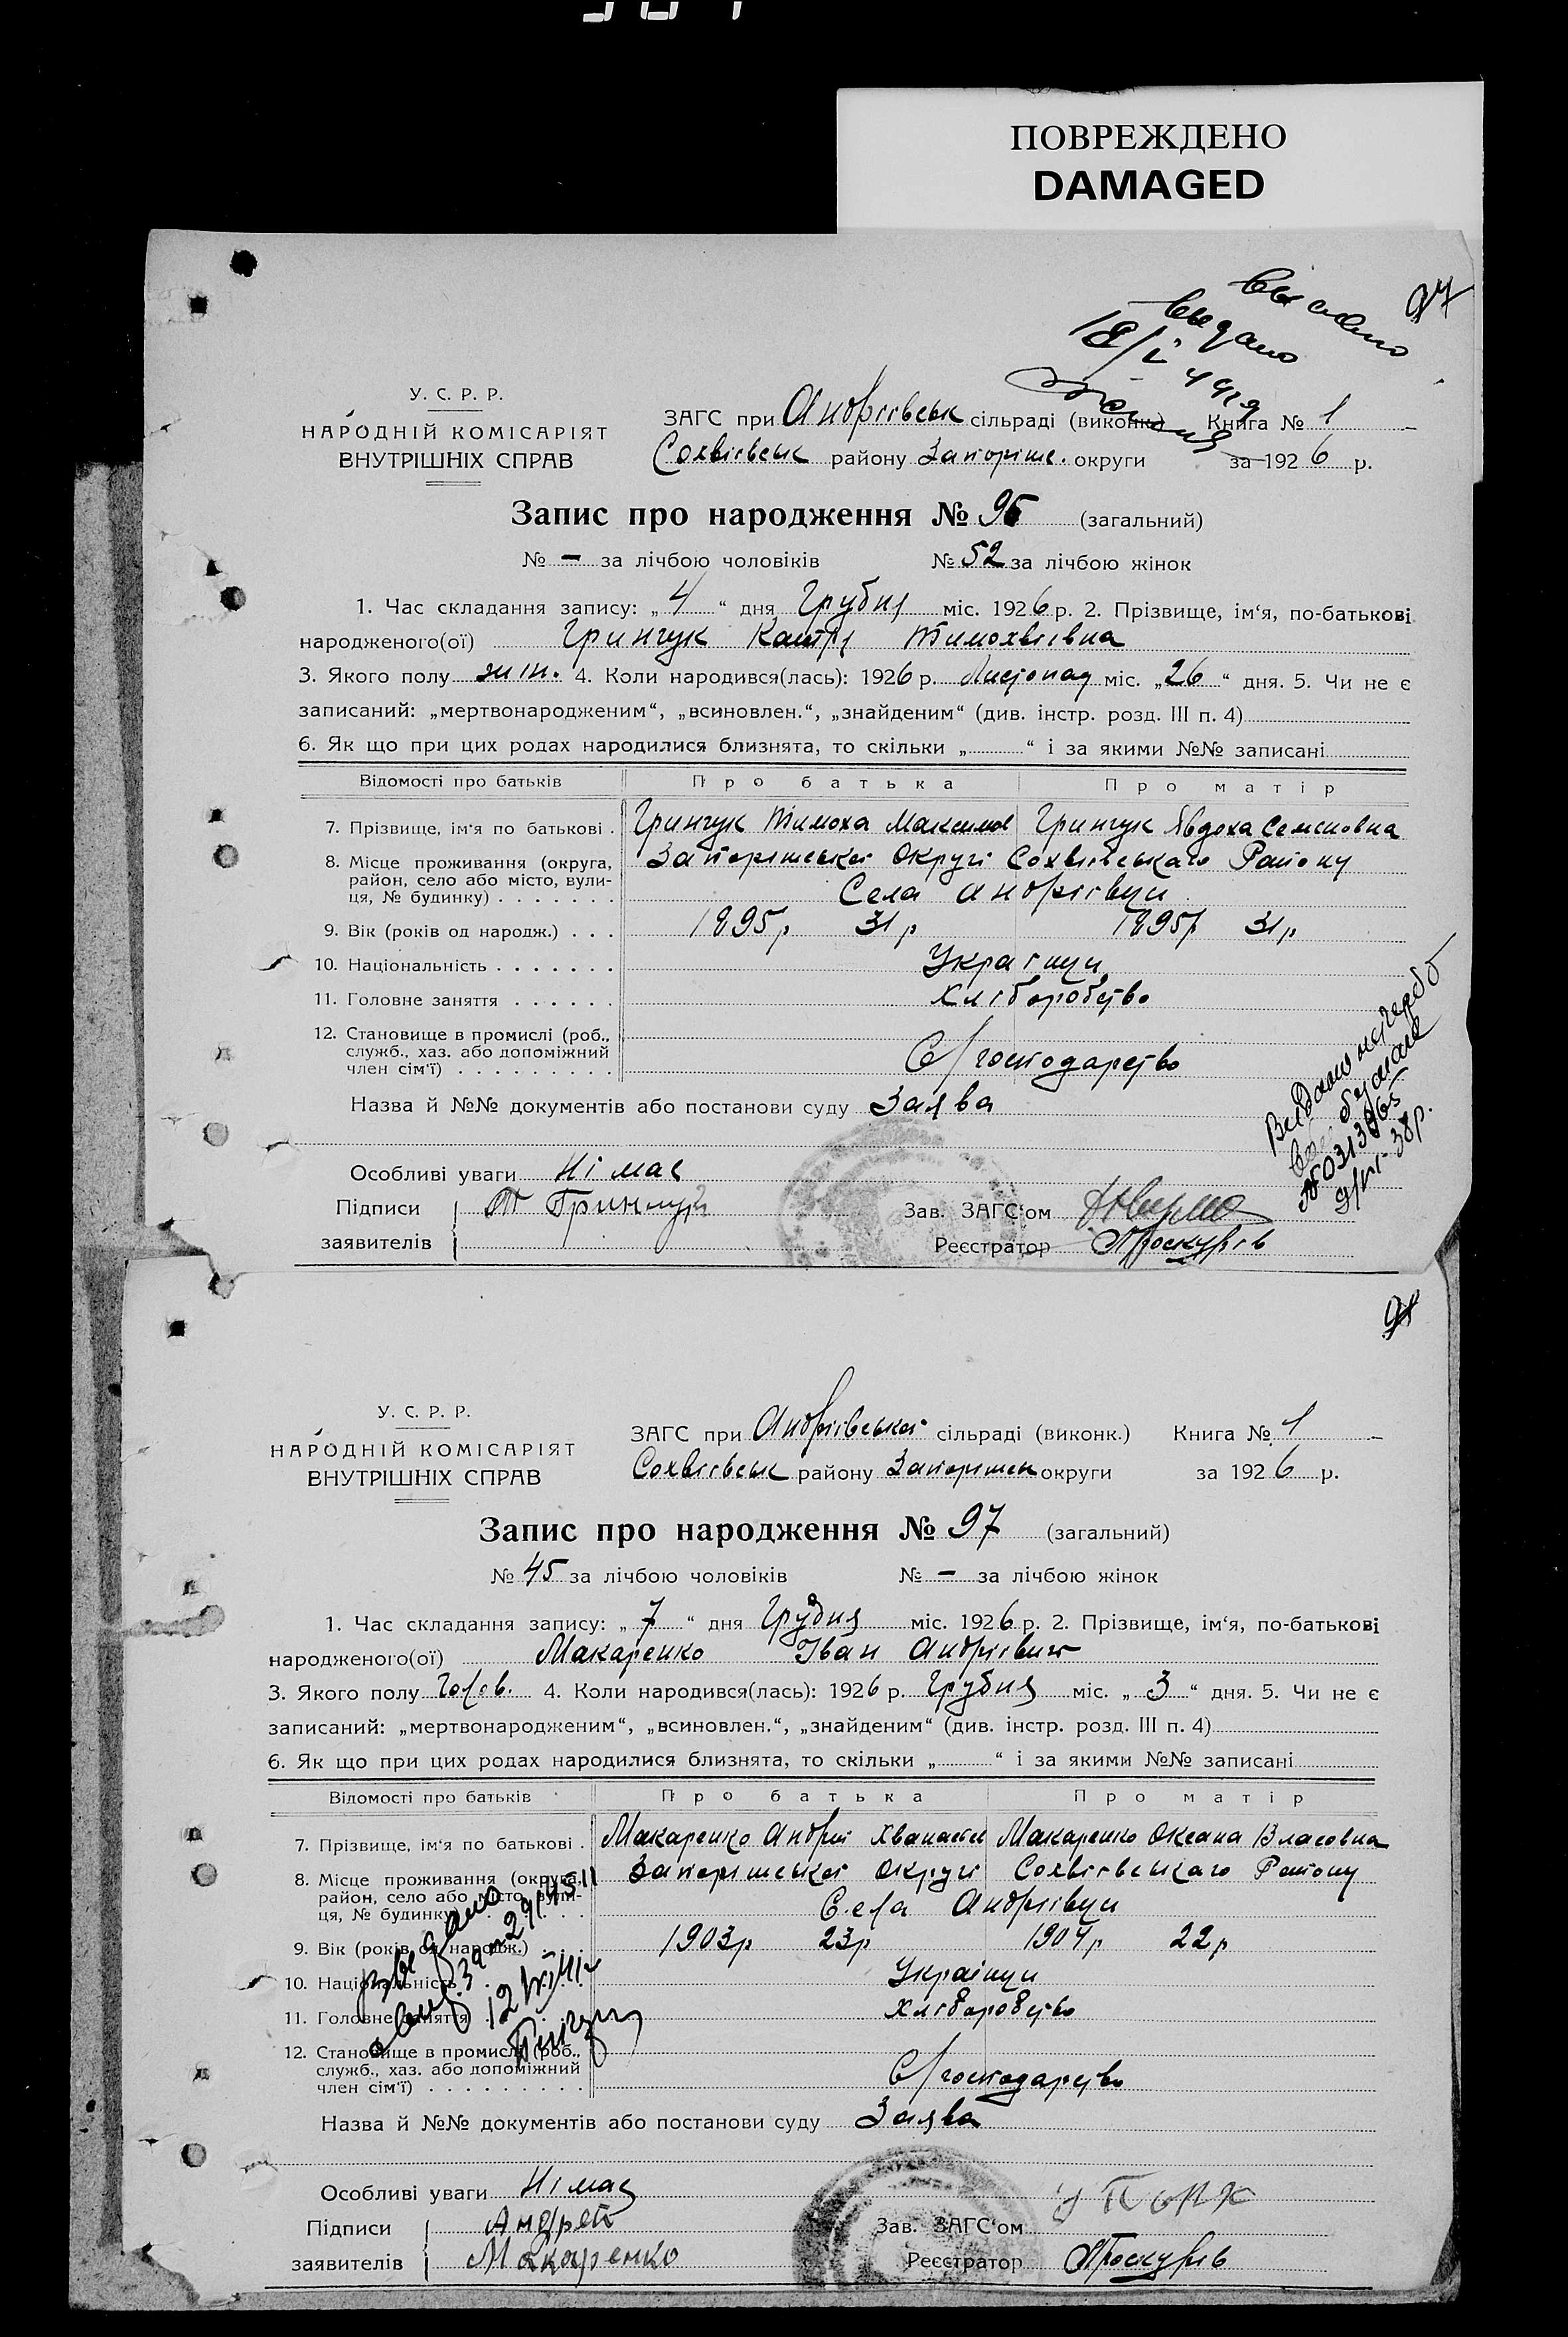 ПОВРЕЖДЕНО
DAMAGED
97
Выдано
У. С. Р. Р.
НАРОДНІЙ КОМІСАРІЯТ
ВНУТРІШНІХ СПРАВ
ЗАГС при Андріівськ сільраді (виконк.) Книга № 1
Сохвіівськ району Запоріж. округи за 1926 р.
Запис про народження № 96 (загальний)
№ — за лічбою чоловіків № 52 за лічбою жінок
1. Час складання запису: „4“ дня Грудня міс. 1926 р. 2. Прізвище, ім‘я, по-батькові
народженого(ої) Гринчук Катря Тимохвіівна
3. Якого полу жін. 4. Коли народився(лась): 1926 р. Листопад міс. „26“ дня. 5. Чи не є
записаний: „мертвонародженим“, „всиновлен.“, „знайденим“ (див. інстр. розд. III п. 4)
6. Як що при цих родах народилися близнята, то скільки „ “ і за якими №№ записані
Відомості про батьків Про батька Про матір
7. Прізвище, ім‘я по батькові . Гринчук Тимоха Максимов Гринчук Явдоха Семеновна
8. Місце проживання (округа, Запоріжської Округі Сохвіівського Району
район, село або місто, вули-
ця, № будинку) . . . . . . . Села Андріівци
9. Вік (років од народж.) . . . 1895р 31р 1895р 31р
10. Національність . . . . . . . Украінци
11. Головне заняття . . . . . . Хліборобство
12. Становище в промислі (роб.,
служб., хаз. або допоміжний С/господарство
член сім‘ї) . . . . . . . . .
Назва й №№ документів або постанови суду Заява
Особливі уваги Німає
Підписи Т Гринчук Зав. ЗАГС‘ом
заявителів Реєстратор Проскурів
У. С. Р. Р.
НАРОДНІЙ КОМІСАРІЯТ
ВНУТРІШНІХ СПРАВ
ЗАГС при Андріівської сільраді (виконк.) Книга № 1
Сохвіівськ району Запоріжськ округи за 1926 р.
Запис про народження № 97 (загальний)
№ 45 за лічбою чоловіків № — за лічбою жінок
1. Час складання запису: „7“ дня Грудня міс. 1926 р. 2. Прізвище, ім‘я, по-батькові
народженого(ої) Макаренко Іван Андріівич
3. Якого полу Чолов. 4. Коли народився(лась): 1926 р. Грудня міс. „3“ дня. 5. Чи не є
записаний: „мертвонародженим“, „всиновлен.“, „знайденим“ (див. інстр. розд. III п. 4)
6. Як що при цих родах народилися близнята, то скільки „ “ і за якими №№ записані
Відомості про батьків Про батька Про матір
7. Прізвище, ім‘я по батькові . Макаренко Андрій Хванасієв Макаренко Оксана Власовна
8. Місце проживання (округа, Запоріжської Округі Сохвіівського Району
район, село або місто, вули-
ця, № будинку) . . . . Села Андріівци
9. Вік (років од народж.) . . . 1903р 23р 1904р 22р
10. Національність Украінци
11. Головне заняття Хліборобство
12. Становище в промислі (роб.,
служб., хаз. або допоміжний С/господарство
член сім‘ї) . . . . . . . . .
Назва й №№ документів або постанови суду Заява
Особливі уваги Німає
Підписи Андрей Зав. ЗАГС‘ом
заявителів Макаренко Реєстратор Проскурів